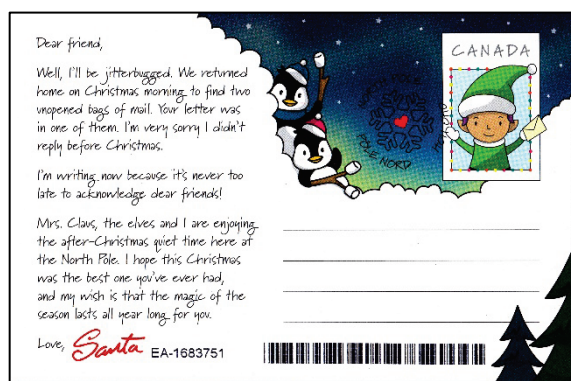 Dear friend,
Well, I'll be jitterbugged. We returned
home on Christmas morning to find two
unopened bags of mail. Your letter was
in one of them. I'm very sorry I didn't
reply before Christmas.
I'm writing now because it's never too
late to acknowledge dear friends!
Mrs. Claus, the elves and I are enjoying
the after-Christmas quiet time here at
the North Pole. I hope this Christmas
was the best one you've ever had,
and my wish is that the magic of the
season lasts all year long for you.
Love, Santa EA-1683751
CANADA
PÔLE NORD